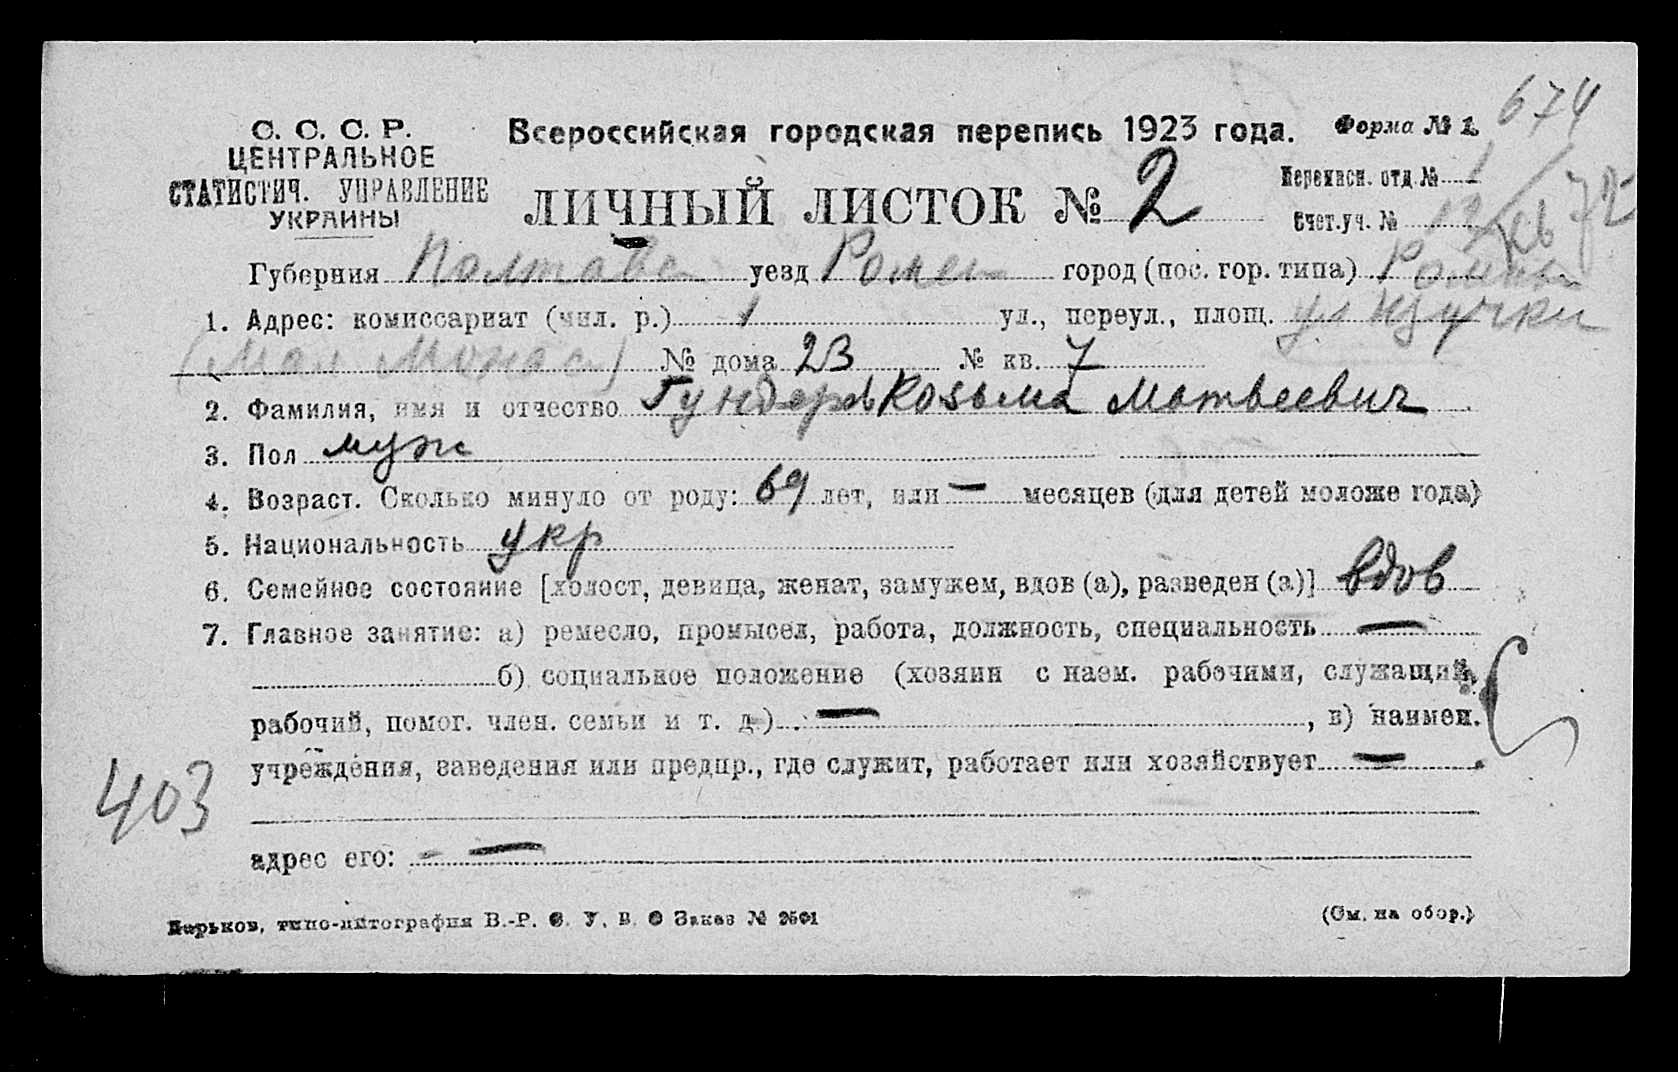 674
С. С. С. Р. Всероссийская городская перепись 1923 года. Форма № 1.
ЦЕНТРАЛЬНОЕ
СТАТИСТИЧ. УПРАВЛЕНИЕ
УКРАИНЫ
ЛИЧНЫЙ ЛИСТОК № 2
Переписн. отд. № 1
Счет.уч. № 12 72
Губерния Полтавс уезд Ромен город (пос. гор. типа) Ромны
1. Адрес: комиссариат (мил. р.) 1 ул., переул., площ. ул
(Мал Монас) № дома 23 № кв. 7
2. Фамилия, имя и отчество Козьма Матвеевич
3. Пол муж
4. Возраст. Сколько минуло от роду: 69 лет, или — месяцев (для детей моложе года)
5. Национальность укр
6. Семейное состояние [холост, девица, женат, замужем, вдов (а), разведен (а)] вдов
7. Главное занятие: а) ремесло, промысел, работа, должность, специальность —
б) социальное положение (хозяин с наем. рабочими, служащий,
рабочий, помог. член. семьи и т. д.) — , в) наимен.
учреждения, заведения или предпр., где служит, работает или хозяйствует —
403
адрес его: —
Харьков, типо-литография В.-Р. С. У. В. О Заказ № 2501 (См. на обор.)